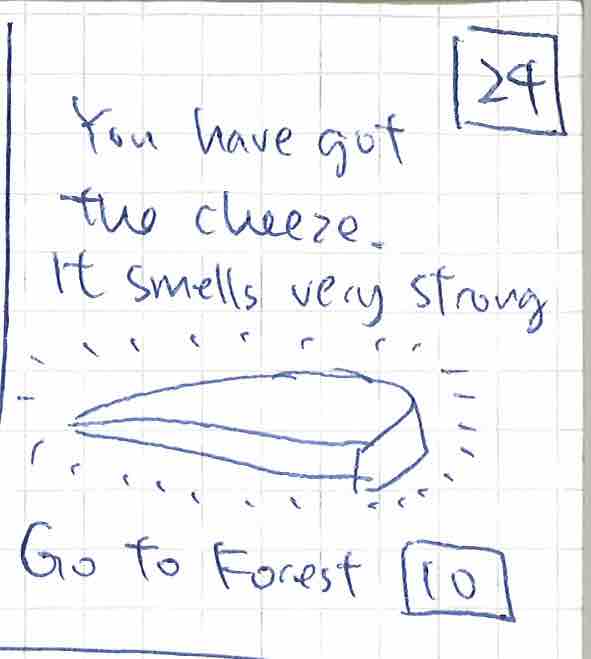 24
You have got
the cheeze.
It smells very strong
Go to Forest 10